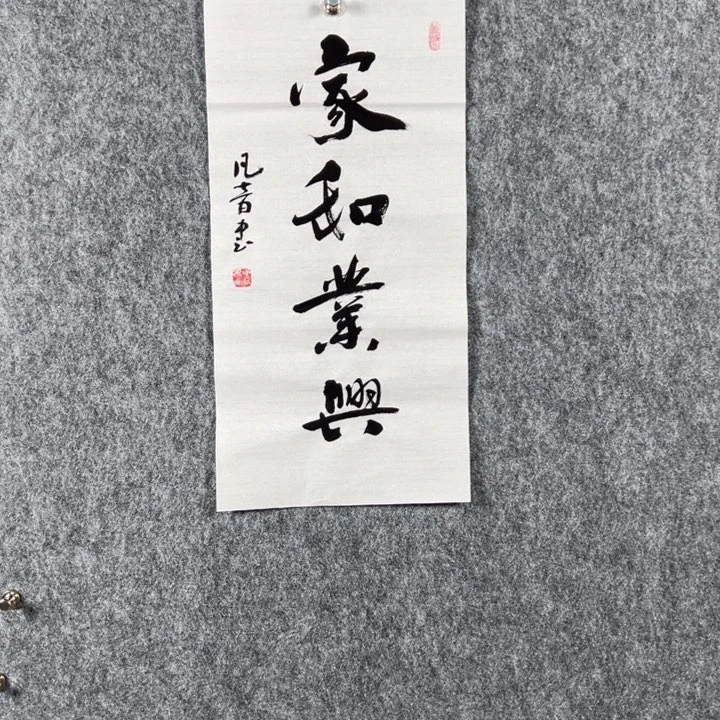 家和業興
凡音書